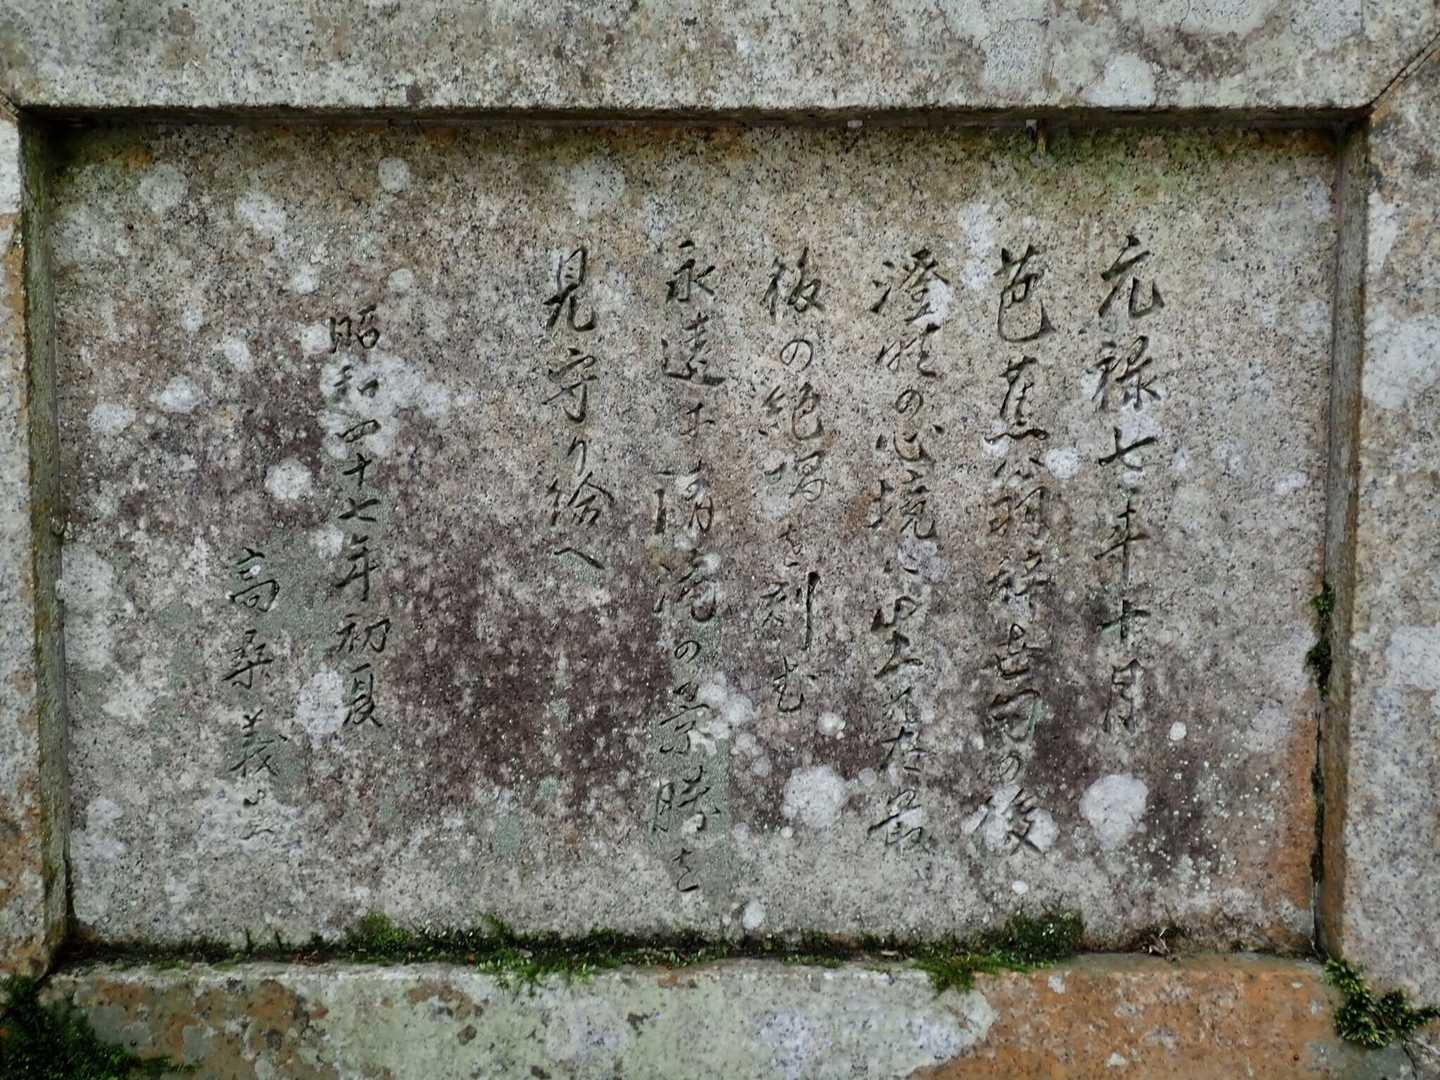 元禄七年十月
芭蕉翁辞世句の後
澄明の心境に出でた最
後の絶唱を刻む
永遠に清滝の景勝を
見守り給へ
昭和四十七年初夏
高桑義生